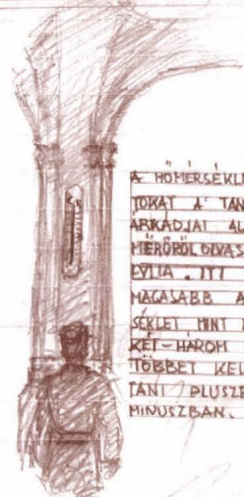 A HŐMERSÉKLE
TOKAT A TAN
ÁRKÁDJAI AL
MÉRŐRŐL OLVAS
ITT
MAGASABB A
SÉKLET MINT
KÉT-HÁROM
TÖBBET KEL
TANI PLUSZB
MINUSZBAN.